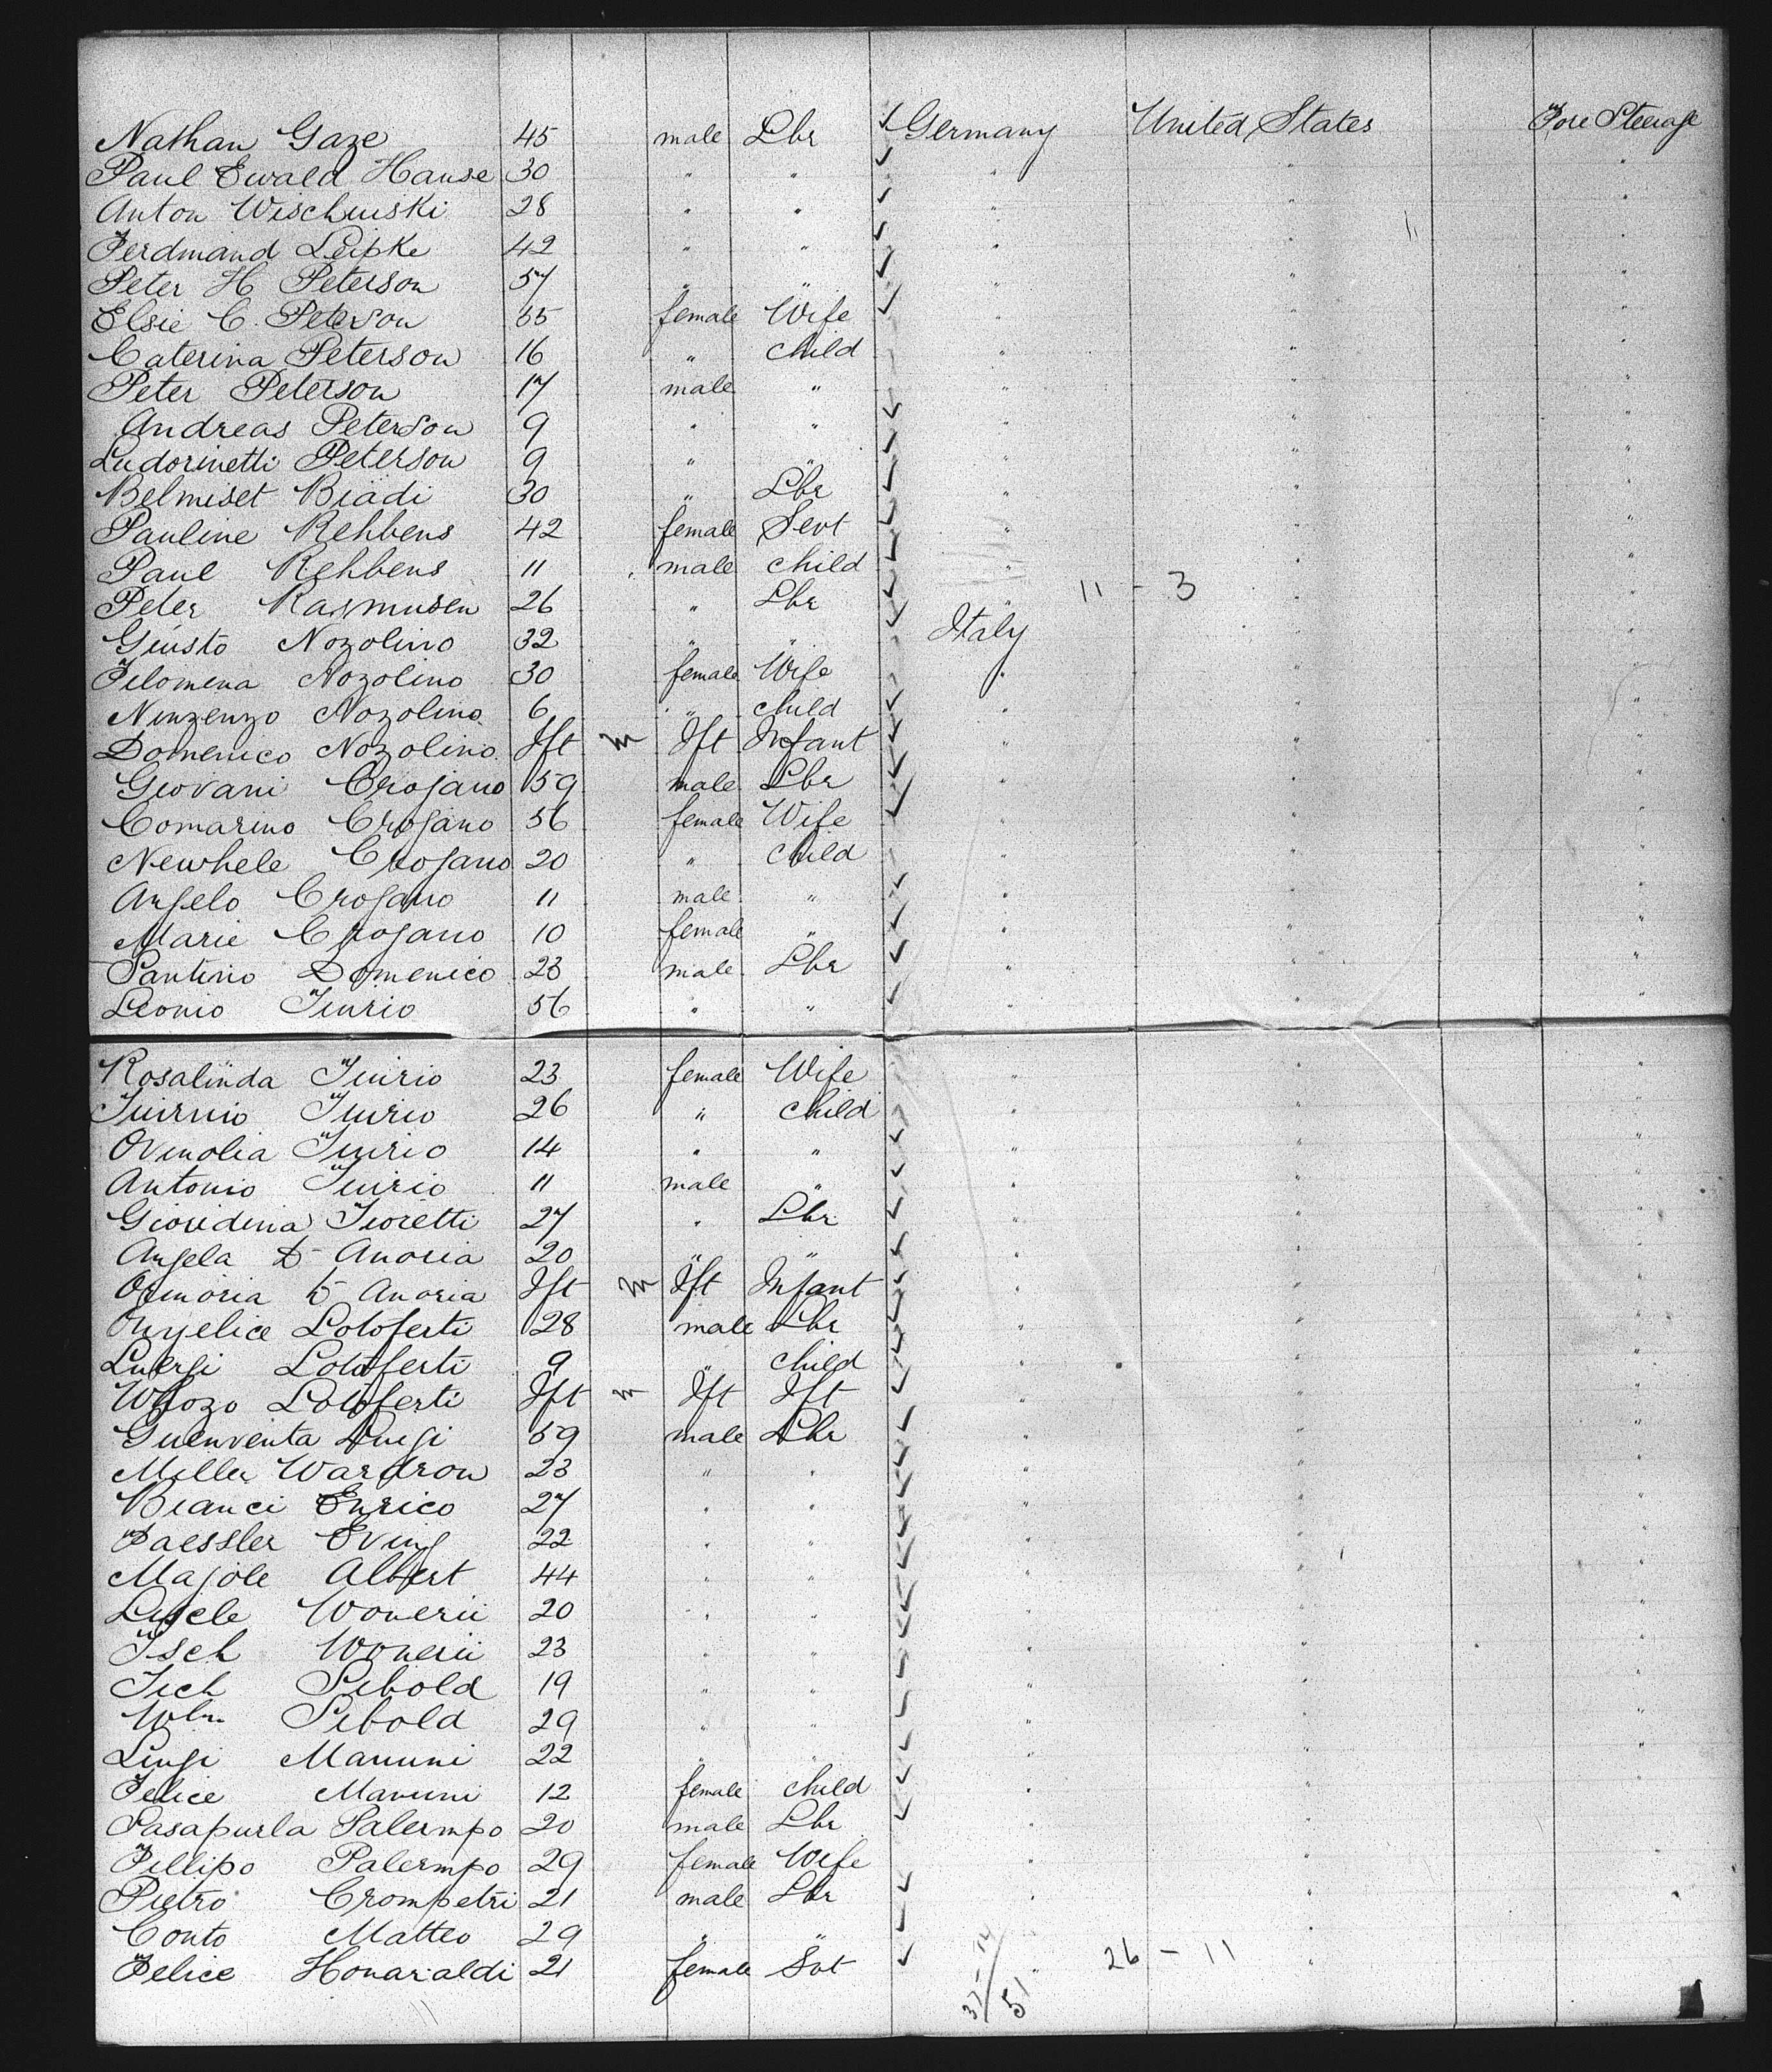 Nathan Gaze 45 male Lbr ✓ Germany United States Fore Steerage
Paul Ewald Hause 30 " " ✓ " " "
Anton Wischinski 28 " " ✓ " " "
Ferdinand Leipke 42 " " ✓ " " "
Peter H Peterson 57 " " ✓ " " "
Elsie C. Peterson 55 female Wife ✓ " " "
Caterina Peterson 16 " child " " "
Peter Peterson 17 male " " " "
Andreas Peterson 9 " " ✓ " " "
Ludorinetti Peterson 9 " " ✓ " " "
Belmiset Biadi 30 " Lbr ✓ " " "
Pauline Rehbens 42 female Sevt ✓ " " "
Paul Rehbens 11 male child ✓ " " "
Peter Rasmusen 26 " Lbr ✓ " 11 - 3 " "
Giusto Nozolino 32 " " ✓ Italy " "
Filomena Nozolino 30 female Wife " " "
Ninzenzo Nozolino 6 " child ✓ " " "
Domenico Nozolino Ift m Ift Infant ✓ " " "
Giovani Crojano 59 male Lbr ✓ " " "
Comarino Crojano 56 female Wife ✓ " " "
Newhele Crojano 20 " child " " "
Angelo Crojano 11 male " ✓ " " "
Marie Crojano 10 female " ✓ " " "
Santino Domenico 23 male Lbr ✓ " " "
Leonio Iurio 56 " " ✓ " " "
Rosalinda Iuirio 23 female Wife " " "
Iuirnio Iuirio 26 " child ✓ " " "
Ovinolia Iuirio 14 " " ✓ " " "
Antonio Iuirio 11 male " ✓ " " "
Giovidinia Fioretti 27 " Lbr ✓ " " "
Angela D Anoria 20 " " ✓ " " "
Ominoria D Anoria Ift m Ift Infant ✓ " " "
Onyelice Lotoferti 28 male Lbr ✓ " " "
Luergi Lotoferti 9 " child ✓ " " "
Whozo Lotoferti Ift m Ift Ift ✓ " " "
Guenventa Luigi 59 male Lbr ✓ " " "
Miller Wardrow 23 " " ✓ " " "
Bianci Enrico 27 " " ✓ " " "
Paessler Eving 22 " " ✓ " " "
Majole Albert 44 " " ✓ " " "
Ligele Wonerii 20 " " ✓ " " "
Isch Wonerii 23 " " ✓ " " "
Iich Sibold 19 " " ✓ " " "
Wlm Sibold 29 " " ✓ " " "
Luigi Manuni 22 " " ✓ " " "
Felice Manuni 12 female child ✓ " " "
Pasapurla Palermpo 20 male Lbr ✓ " " "
Fillipo Palermpo 29 female Wife " " "
Pietro Crompetri 21 male Lbr ✓ " " "
Conto Matteo 29 " " ✓ " " "
Felice Honaraldi 21 female Svt ✓ " 26 - 11 "
37 - 14
51